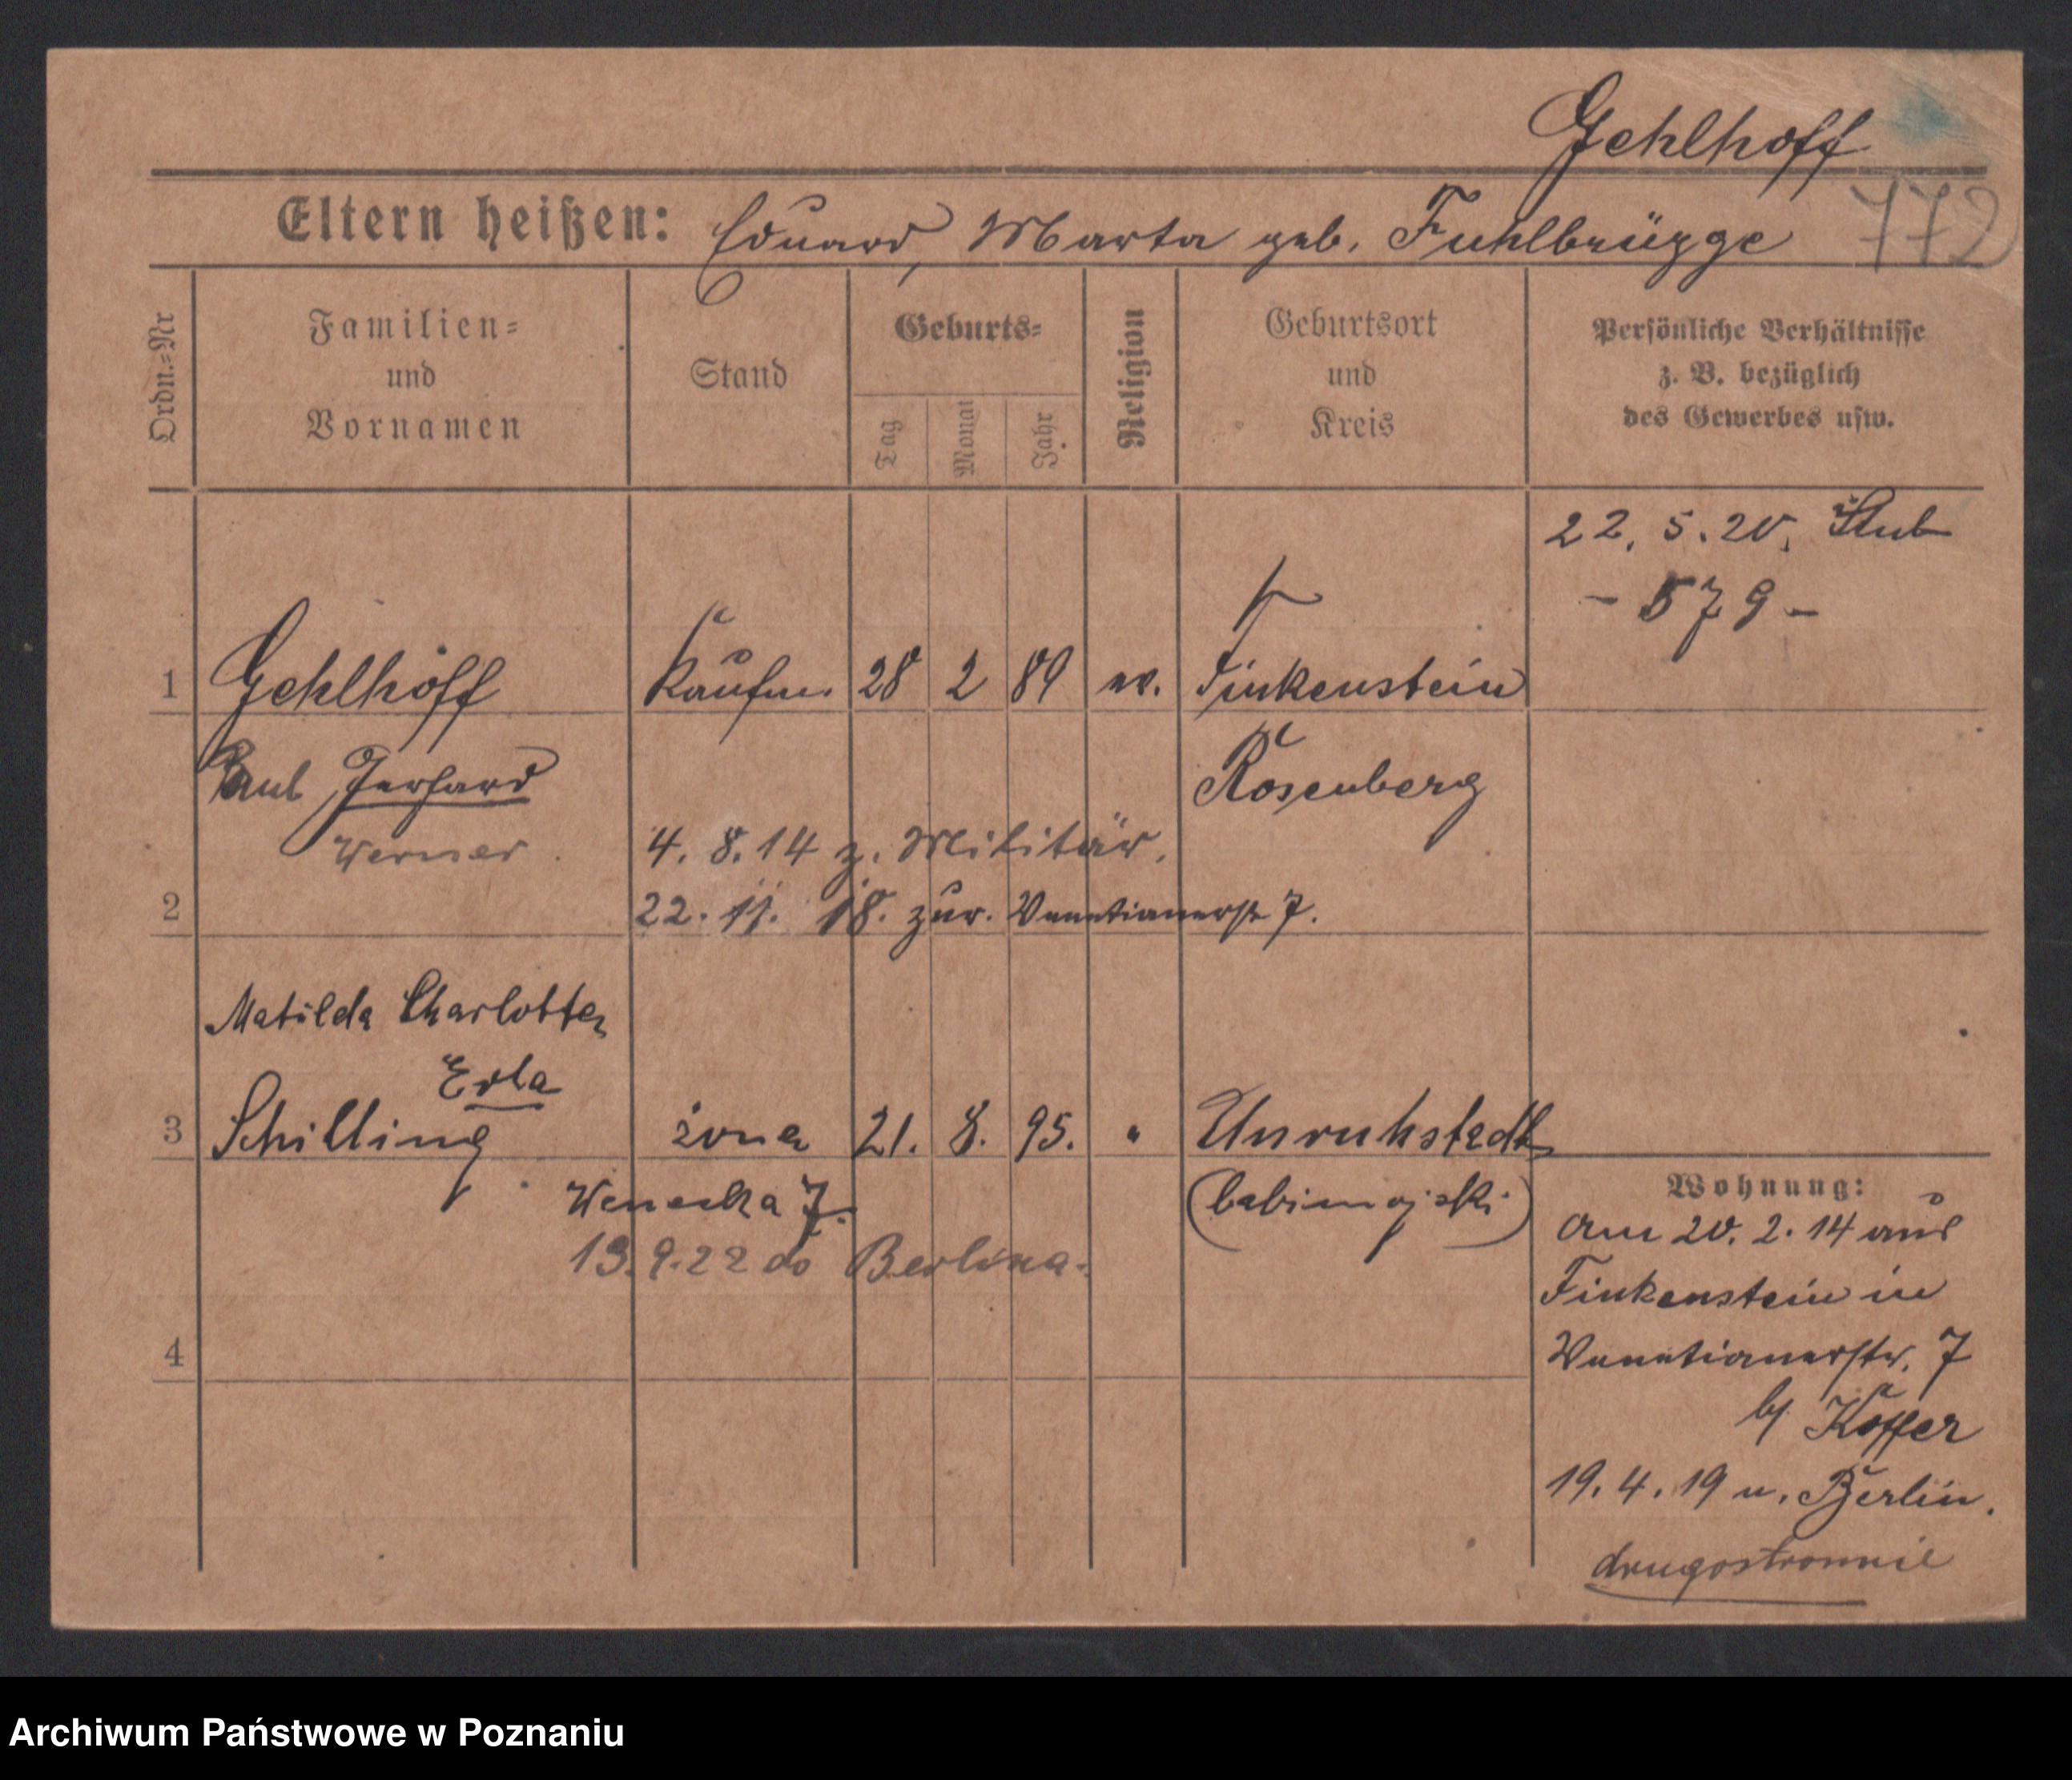 Gehlhoff
772
Eltern heißen: Eduard, Marta geb. Fuhlbrügge
Ordn.=Nr
Familien=
und
Vornamen
Stand
Geburts=
Tag
Monat
Jahr
Religion
Geburtsort
und
Kreis
Persönliche Verhältnisse
z. B. bezüglich
des Gewerbes usw.
22. 5. 20.
- 579 -
1 Gehlhoff Kaufm. 28 2 89 ev. Finkenstein
Paul Gerhard Rosenberg
Werner 4. 8. 14 z. Militär.
2 22. 11. 18. zur. Venetianerstr 7.
Matilda Charlotte
Erla
3 Schilling żona 21. 8. 95. " Unruhstadt
Wenecka 7. (babimojski)
13.9.22 do Berlina.
4
Wohnung:
am 20. 2. 14 aus
Finkenstein in
Venetianerstr. 7
b/ Koffer
19. 4. 19 n. Berlin.
drugostronnie
Archiwum Państwowe w Poznaniu